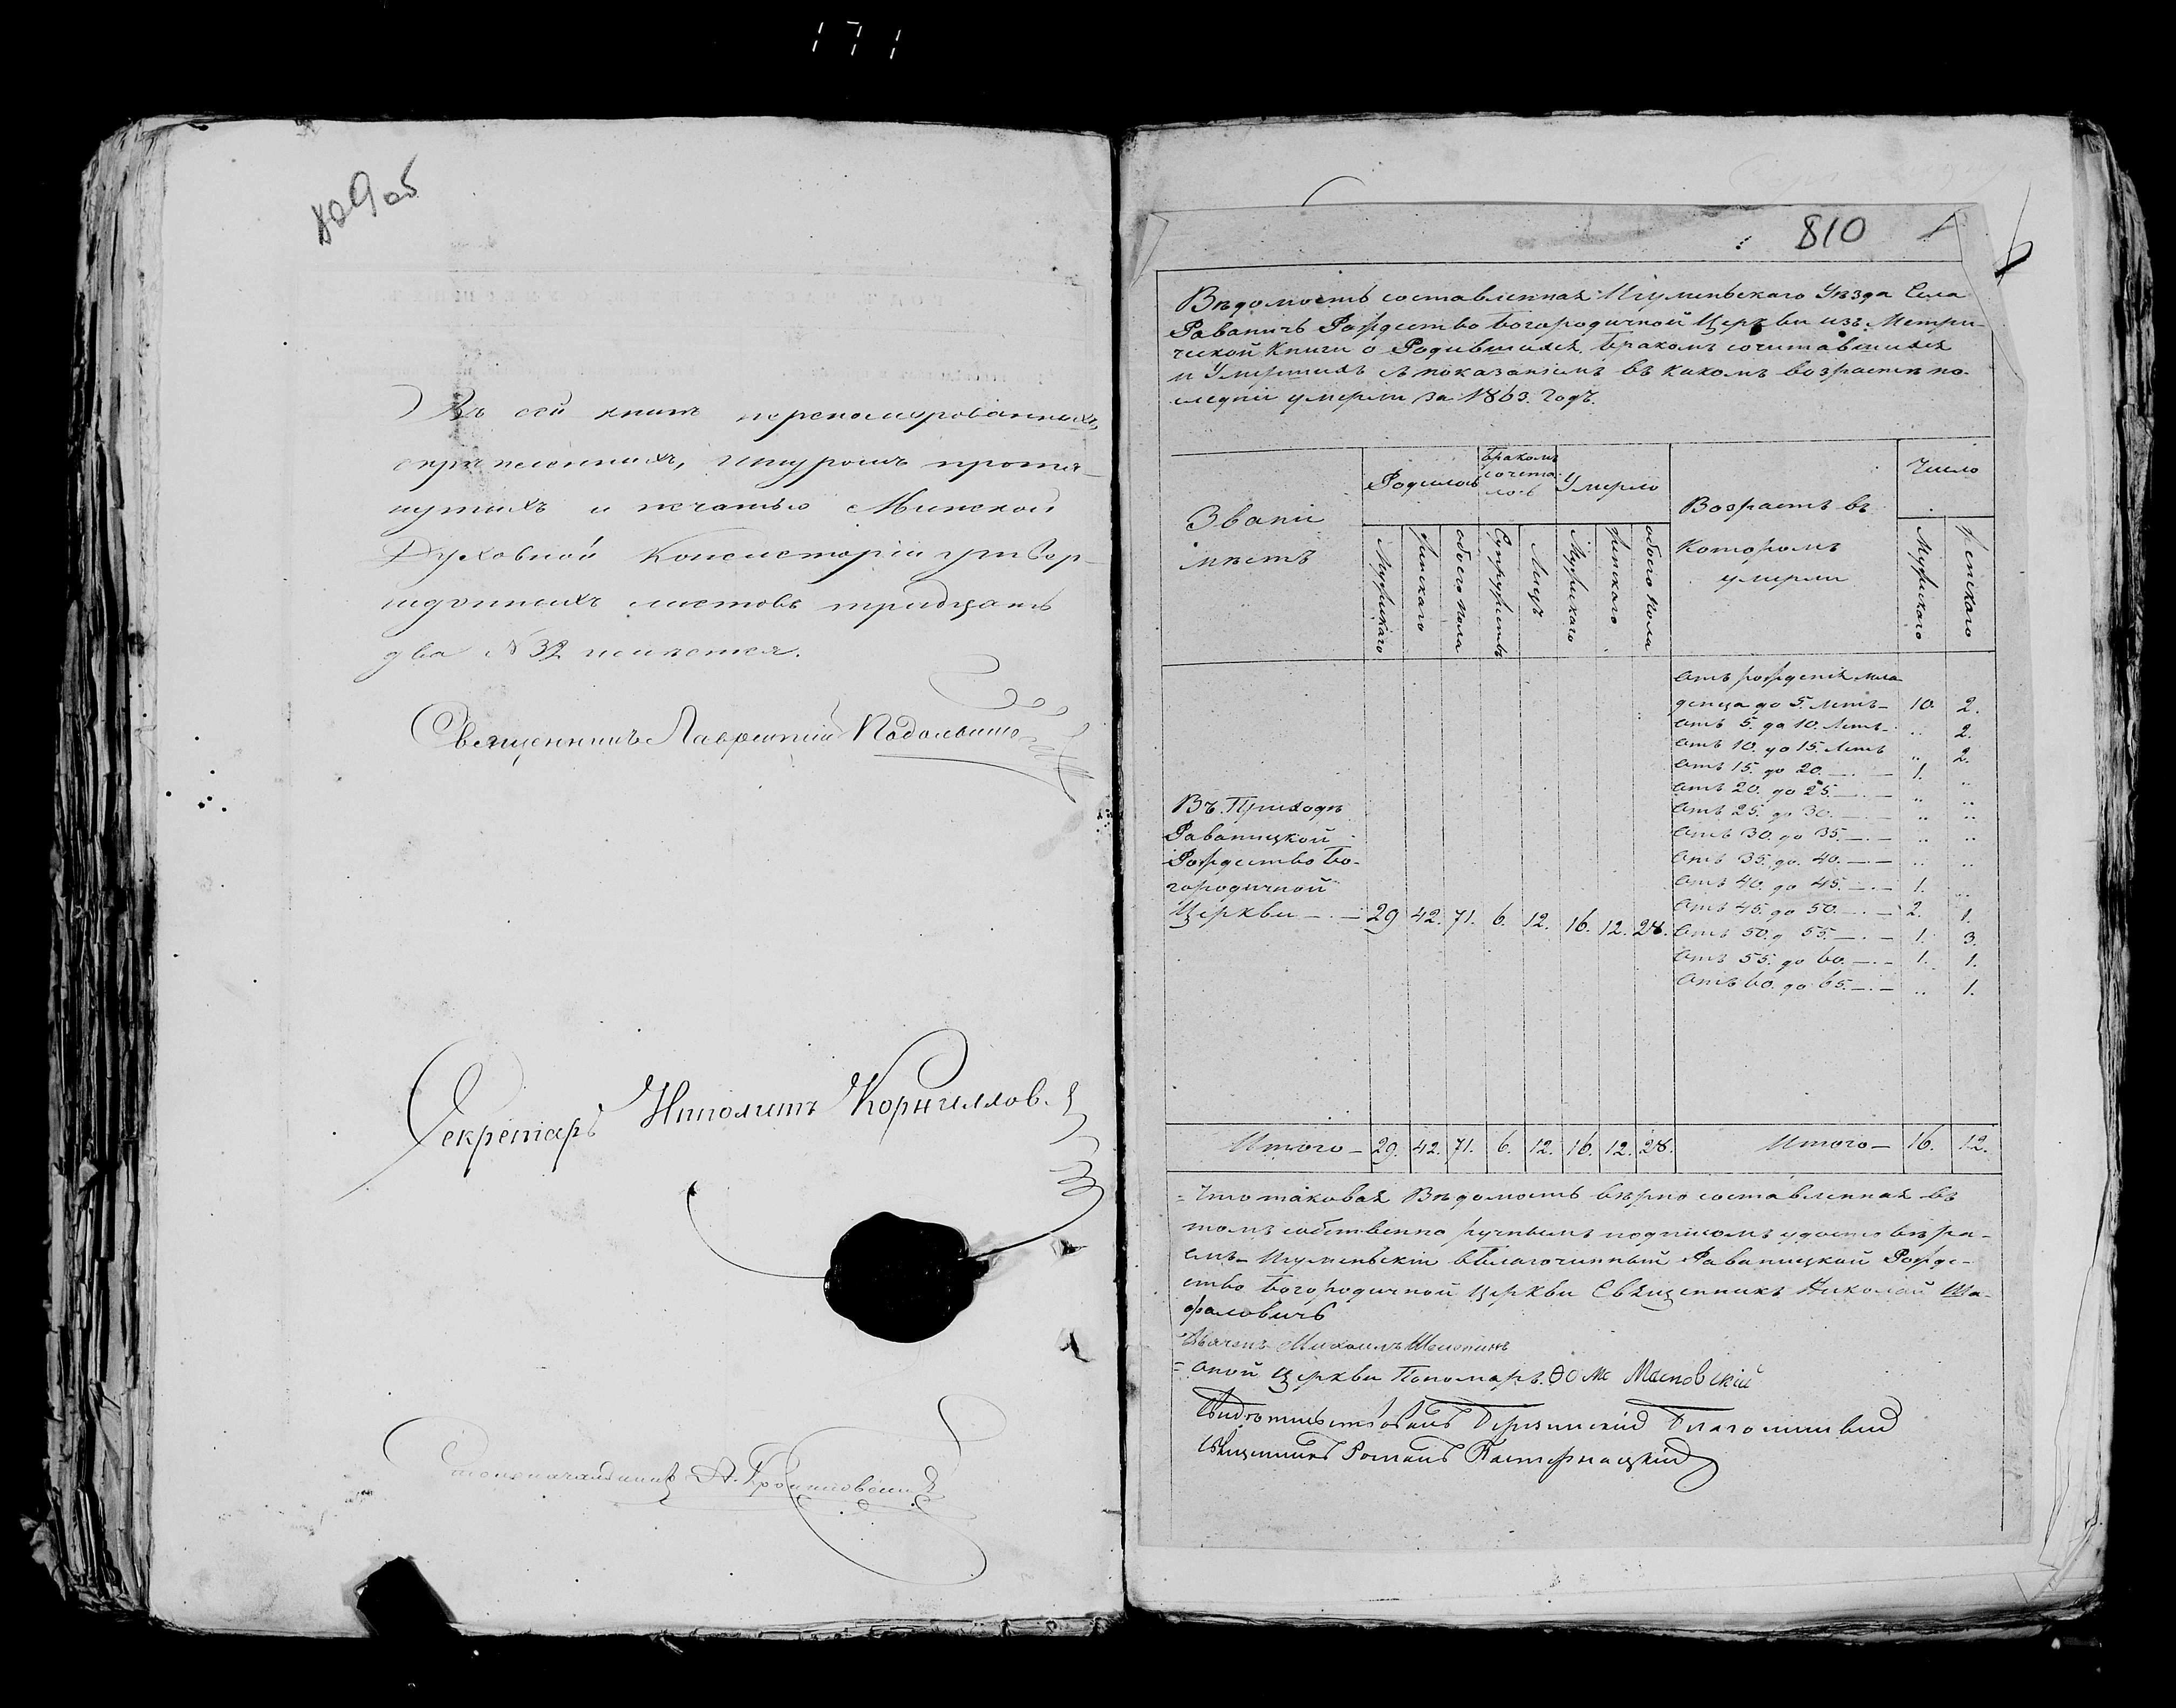 171
809 об
Въ сей книгѣ перенумерованныхъ,
скрѣпленныхъ, шнуромъ протя-
нутыхъ и печатью Минской
Духовной Консисторіи утвер-
жденныхъ листовъ тридцать
два № 32 имѣется.
Священникъ Лаврентій
Секретарь Ипполитъ Корнилов
Столоначальникъ А.
810
Вѣдомость составленная Игуменьскаго Уѣзда Села
Раваничъ Рождество Богородичной Церкви изъ Метри-
ческой Книги о Родившихся, бракомъ сочетавшихся
и Умершихъ съ показаніемъ въ какомъ возрастѣ по-
следніи умерли за 1863. Годъ.
Звані
мѣстъ
Родилось
бракомъ
сочета
лось
Умерло
Возрастъ въ
Которомъ
умерли
Число
Мужскаго
женскаго
обоего пола
Супружествъ
Лицъ
Мужскаго
женскаго
обоего пола
Мужскаго
женскаго
Отъ рожденія мла-
денца до 5. летъ- 10. 2.
Отъ 5. до 10. Летъ- .. 2.
Отъ 10. до 15. Летъ .. 2.
Отъ 15. до 20. — . — 1. ..
Отъ 20. до 25. — . — .. ..
Отъ 25. до 30. — . — .. ..
Отъ 30. до 35. — . — .. ..
Отъ 35. до 40. — . — .. ..
Отъ 40. до 45. — . — 1. ..
Отъ 45. до 50. — . — 2. 1.
Отъ 50. д 55. — . — 1. 3.
Отъ 55. до 60. — . — 1. 1.
Отъ 60. до 65. — . — .. 1.
Въ Приходѣ
Раваницкой
Рождество Бо-
городичной
Церкви — . — 29 42. 71. 6. 12. 16. 12. 28.
Итого — 29. 42. 71. 6. 12. 16. 12. 28. Итого — 16. 12.
= Что таковая Вѣдомость вѣрно составленная въ
томъ собственно ручнымъ подписомъ удостовѣра-
емъ- Игуменьскій Благочинный Раваницкой Рожде-
ство Богородичной Церкви Священникъ Николай Ша-
фаловичъ
Дьячекъ Михаилъ
= оной Церкви Пономарь
Свидѣтельствовалъ Березинскій Благочинный
Священникъ Романъ Пастернацкій